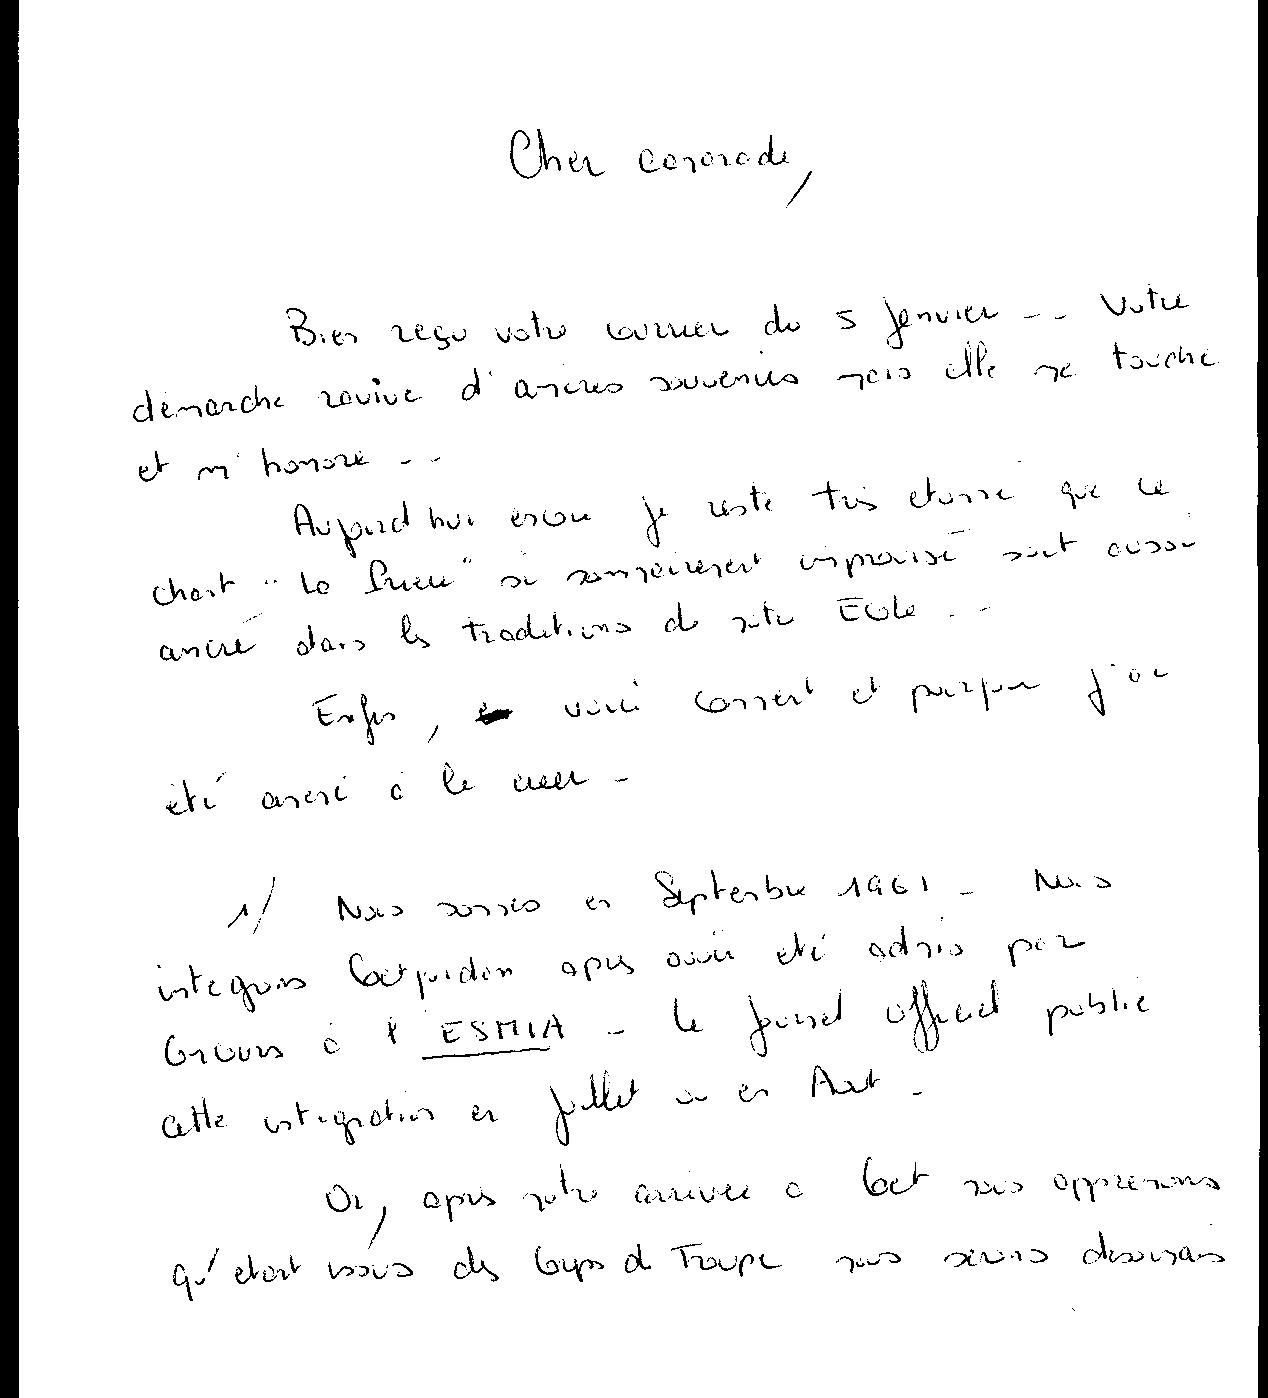 Cher camarade,
Bien reçu votre courrier du 5 Janvier -- Votre
démarche ravive d'anciens souvenirs mais elle me touche
et m'honore --
Aujourd'hui encore je reste très etonné que ce
chant "La Prière" si sommairement improvisé soit aussi
ancré dans les traditions de notre Ecole --
Enfin, voici comment et pourquoi j'ai
été amené à le créer -
1/ Nous sommes en Septembre 1961 - Nous
integrons Coetquidan apres avoir eté admis par
Concours à l'ESMIA - Le journal officiel publie
cette intégration en juillet ou en Aout -
Or, apres notre arrivée a Coet nous apprenons
qu'etant issus des Corps de Troupe nous serons desormais